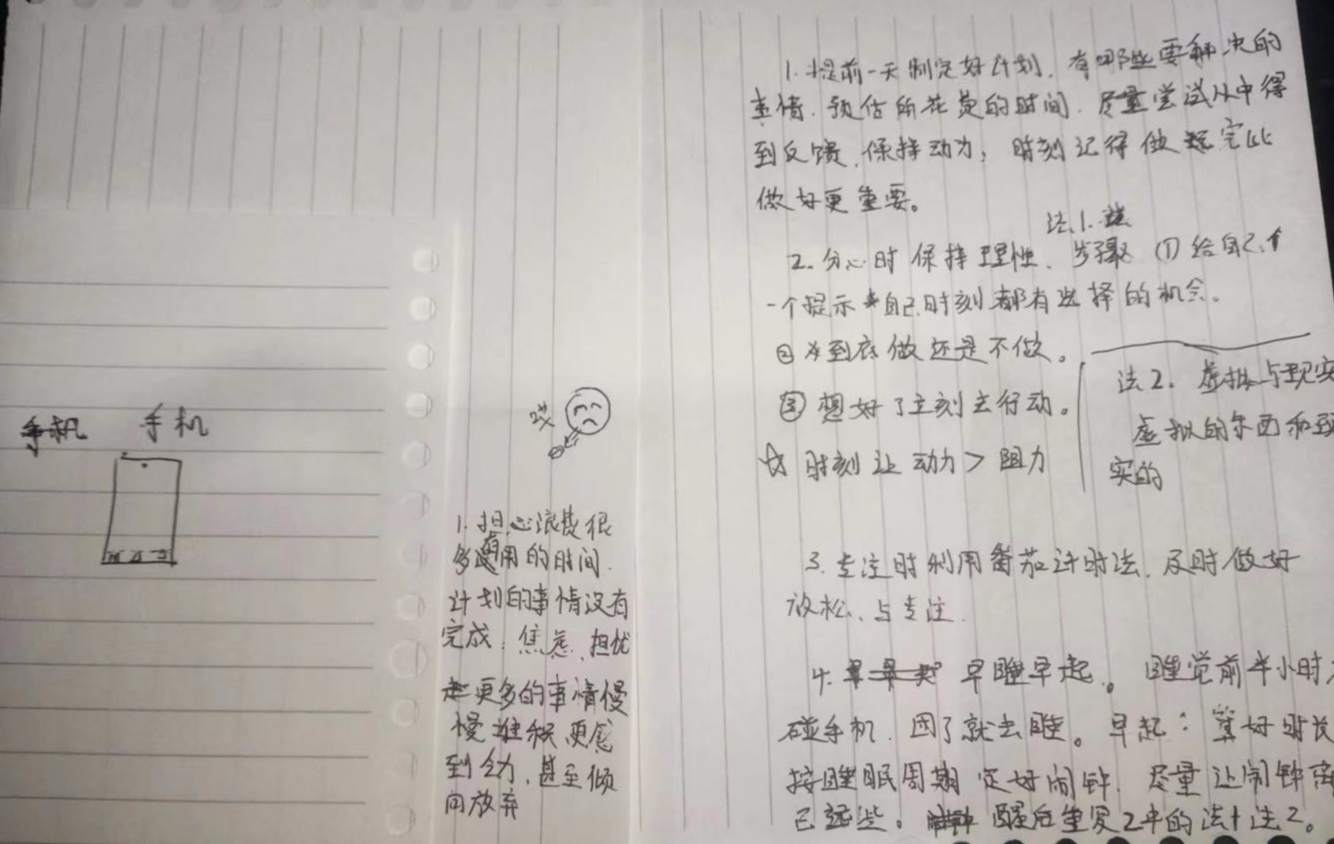 手机 手机
1. 担心浪费很
多有用的时间.
计划的事情没有
完成, 焦虑, 担忧
更多的事情慢
慢堆积,更感
到乏力,甚至倾
向放弃
1. 提前一天制定好计划, 有哪些要解决的
事情, 预估所花费的时间. 尽量尝试从中得
到反馈,保持动力, 时刻记得做完比
做好更重要。
法1.
2. 分心时保持理性、步骤 ① 给自己个
一个提示 自己时刻都有选择的机会。
② 到底做还是不做。
③ 想好了立刻去行动。
☆ 时刻让动力 > 阻力
法2. 虚拟与现实
虚拟的东西和现
实的
3. 专注时利用番茄计时法, 及时做好
放松、与专注.
4. 早睡早起。睡觉前半小时
碰手机, 困了就去睡。早起: 算好时长
按睡眠周期 定好闹钟, 尽量让闹钟离
己远些。醒后重复2中的法1 法2。